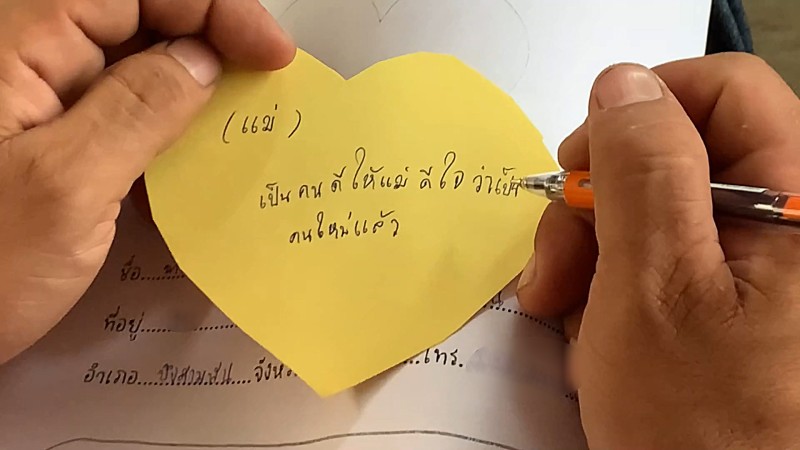 (แม่)
เป็นคนดีให้แม่ ดีใจ ว่าเป็น
คนใหม่แล้ว
ชื่อ....
ที่อยู่....
อำเภอ....บึงสามพัน....จังห....โทร.